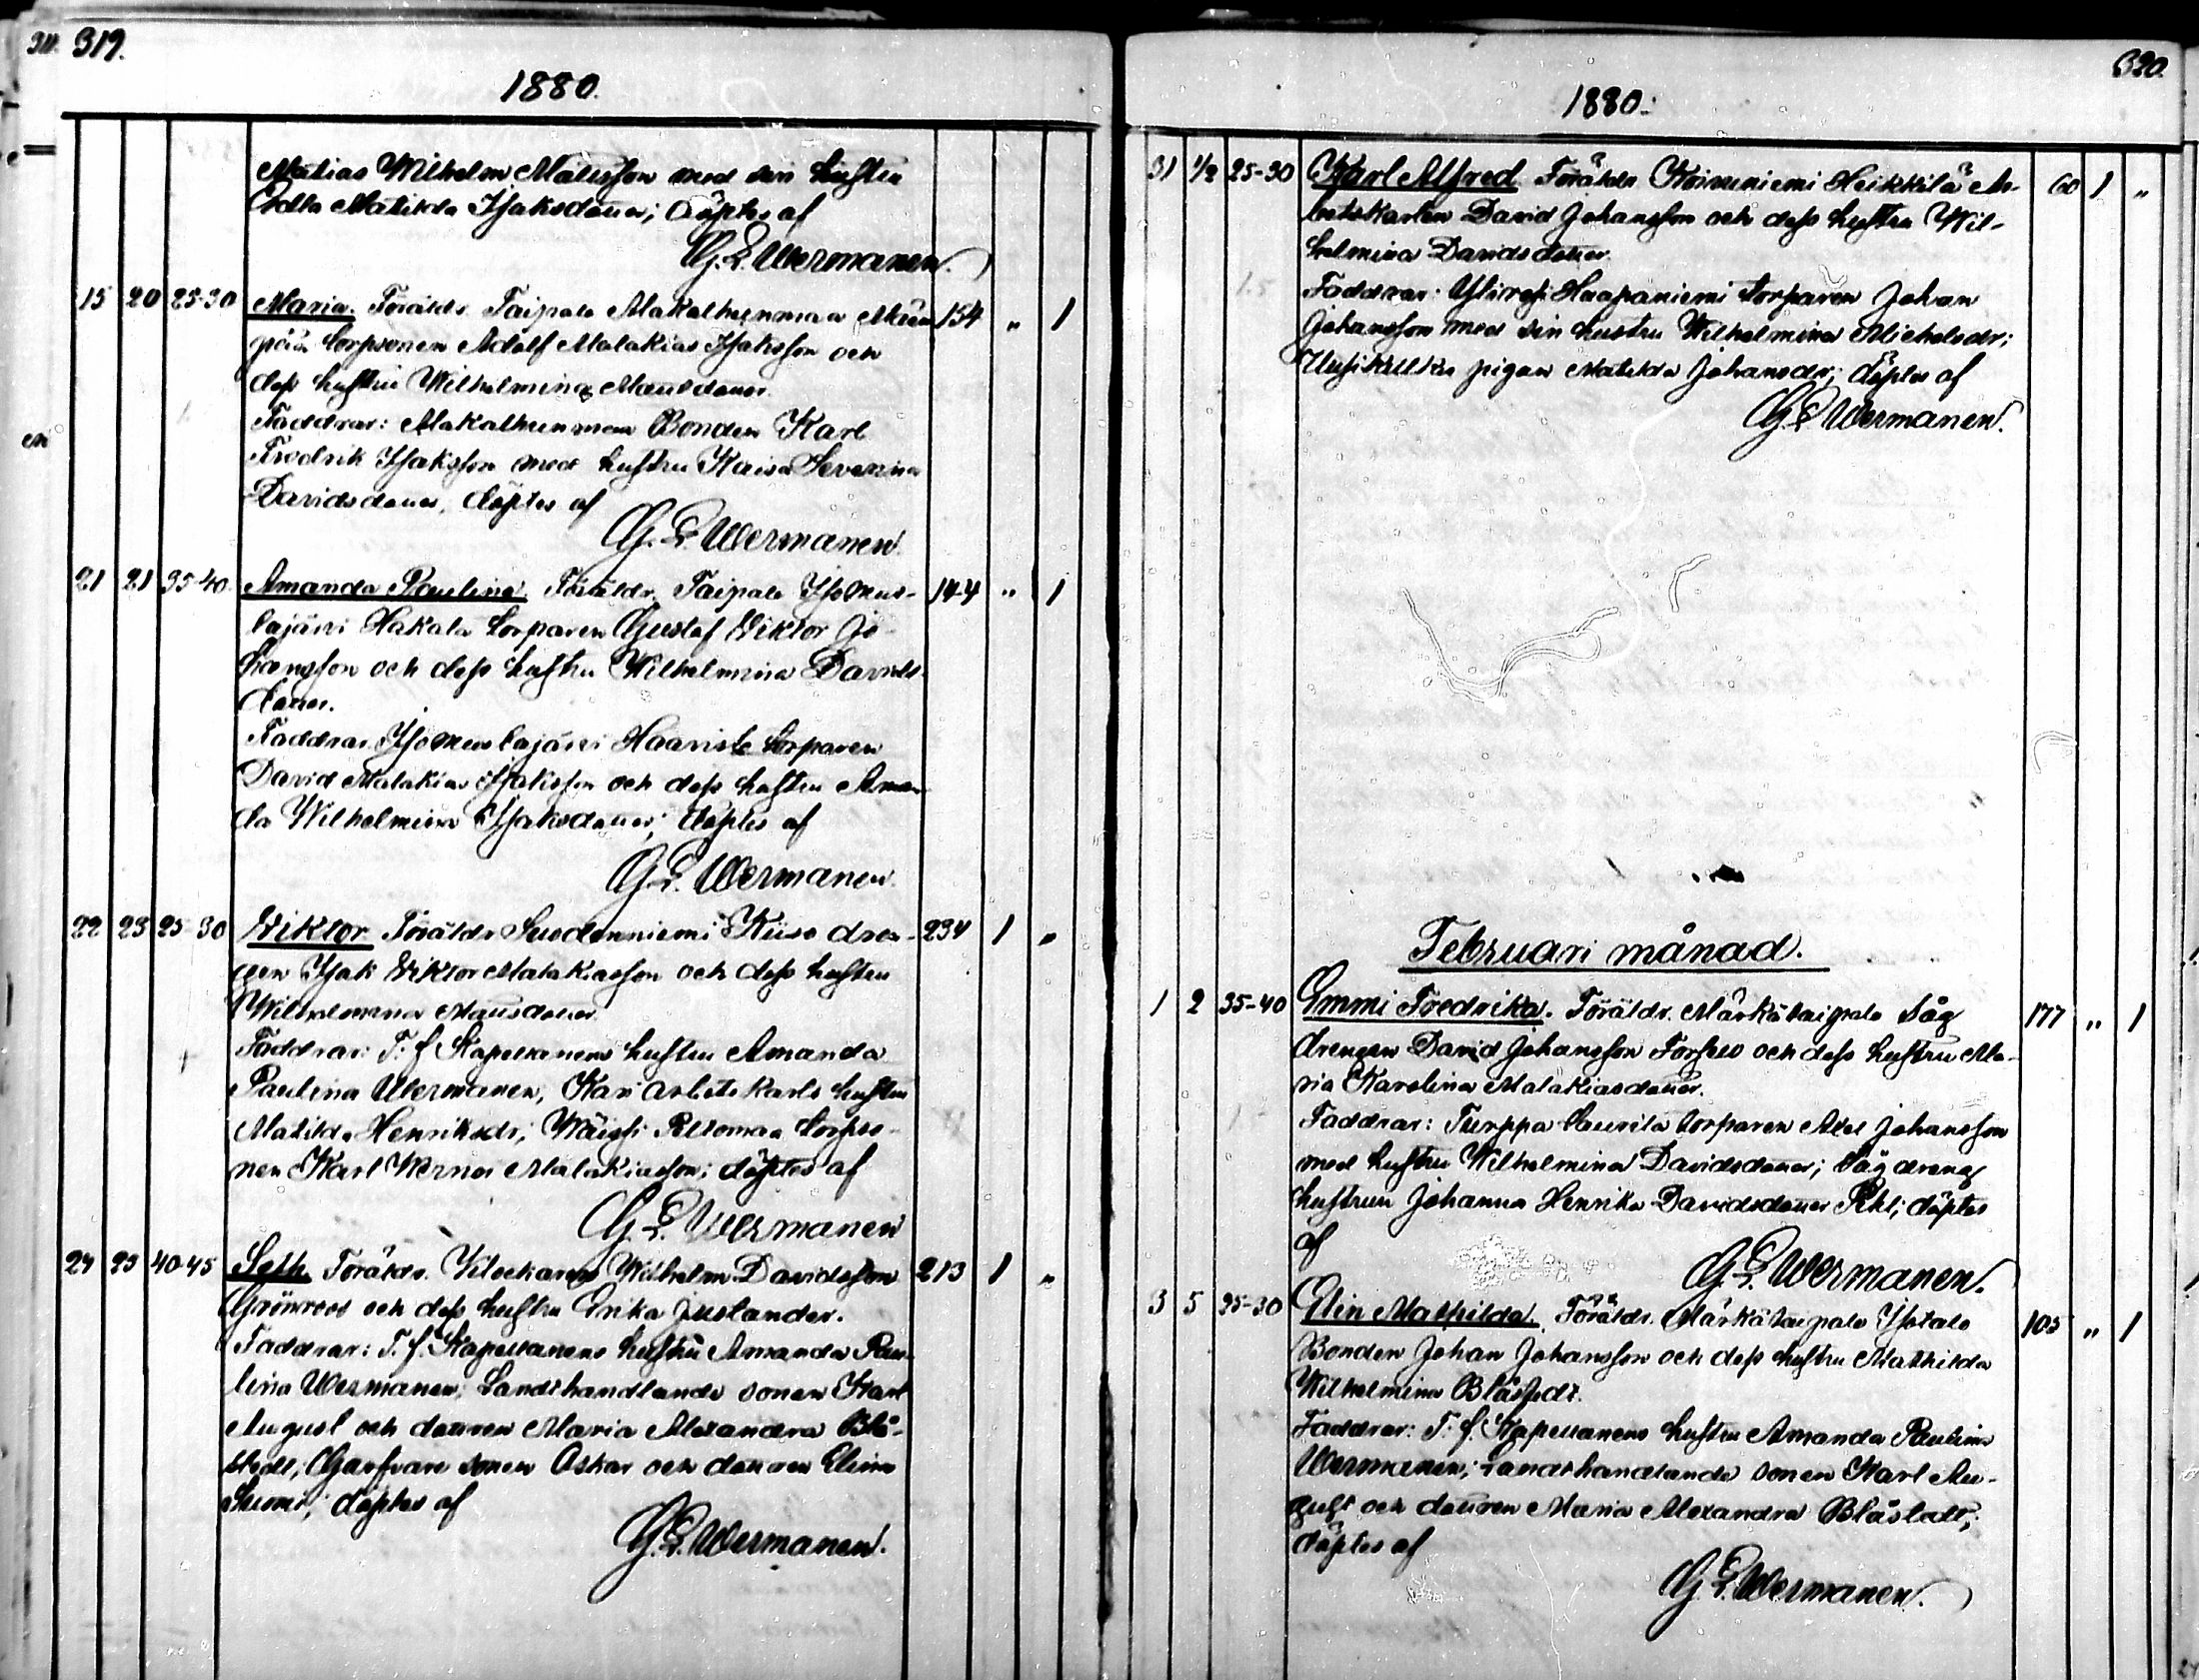 319.
1880.
Matias Wilhelm Matsson med sin hustru
Edla Matilda Isaksdotter; döptes af
G. E. Wermanen.
15 20 25-30 Maria. Föräldr. Taipale Makalhunmaa 154 " 1
pää torpsonen Adolf Malakias Isaksson och
dess hustru Wilhelmina
Faddrar: Makalhunmaa Bonden Karl
Fredrik Isaksson med hustru Kaisa Severina
Davidsdotter, döptes af
G. E. Wermanen
21 21 35-40 Amanda Paulina. Föräldr. Taipale Iso Mus-
tajärvi Hakala torparen Gustaf Viktor Jo- 144 " 1
hansson och dess hustru Wilhelmina Davids-
dotter.
Faddrar Iso Mustajärvi Haavisto torparen
David Malakias Isaksson och dess hustru Aman-
da Wilhelmina Isaksdotter; döptes af
G. E. Wermanen
22 23 25-30 Viktor. Föräldr. Suodenniemi Kiiso dren- 234 1 "
gen Isak Viktor Malakiasson och dess hustru
Wilhelmina
Faddrar: T. f. Kapellanens hustru Amanda
Paulina Wermanen, Kari arbetskarls hustru
Matilda Henriksdr; Peltomaa torpso-
nen Karl Werner Malakiasson; döptes af
G. E. Wermanen
24 25 40-45 Seth. Föräldr. Klockaren Wilhelm Davidsson 213 1 "
Grönroos och dess hustru Erika Juslander.
Faddrar: T. f. Kapellanens hustru Amanda Pau-
lina Wermanen; Landthandlande sonen Karl
August och dottren Maria Alexandra Blå-
stedt; Garfvare sonen Oskar och dottren Elina
döptes af
G. E. Wermanen.
320.
1880.
31 1/2 25-30 Karl Alfred. Föräldr. Koivuniemi Heikkilä Ar- 60 1 "
betskarlen David Johansson och dess hustru Wil-
helmina Davidsdotter.
Faddrar: Haapaniemi torparen Johan
Johansson med sin hustru Wilhelmina Michelsdr;
pigan Matilda Johansdr; döptes af
G. E. Wermanen.
Februari månad.
1 2 35-40 Emmi Fredrika. Föräldr. Märkätaipale Såg 177 " 1
drengen David Johansson Forssell och dess hustru Ma-
ria Karolina Malakiasdotter.
Faddrar: Turppa Laurila torparen Axel Johansson
med hustru Wilhelmina Davidsdotter; Sågdreng
hustrun Johanna Henrika Davidsdotter döptes
af
G. E. Wermanen.
3 5 25-30 Elin Mathilda. Föräldr. Märkätaipale Isotalo 105 " 1
Bonden Johan Johansson och dess hustru Mathilda
Wilhelmina Blåstedt.
Faddrar: T. f. Kapellanens hustru Amanda Paulina
Wermanen; Landthandlande sonen Karl Au-
gust och dottren Maria Alexandra Blåstedt;
döptes af
G. E. Wermanen.